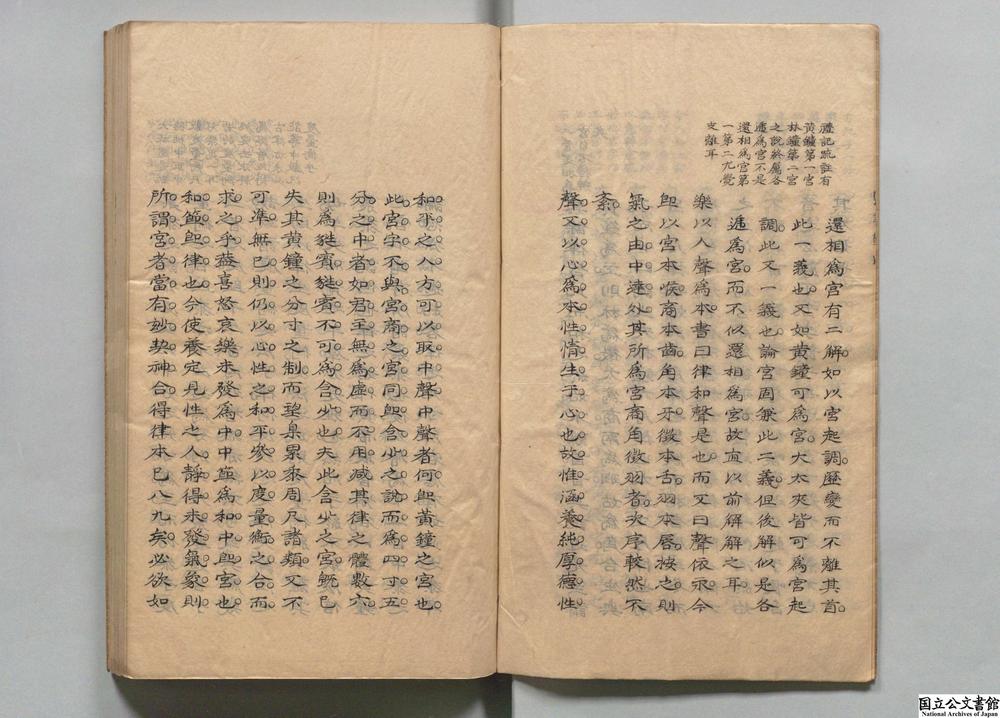 禮記疏註有
黃鐘第一宮
林鐘第二宮
之說終屬各
遞為宮不是
還相為宮第
一第二尤覺
支離耳
還相為宮有二解如以宮起調歷變而不離其首
此一義也又如黃鐘可為宮大太夾皆可為宮起
調此又一義也論宮固無此二義但後解似是各
遞為宮而不似還相為宮故直以前解解之耳
樂以人聲為本書曰律和聲是也而又曰聲依永今
即以宮本喉商本齒角本牙徵本舌羽本唇按之則
氣之由中達外其所為宮商角徵羽者次序較然不
紊
聲又以心為本性情生于心也故惟涵養純厚德性
和平之人方可以取中聲中聲者何即黃鐘之宮也
此宮字不與宮商之宮同即含少之說而為四寸五
分之中者如君主無為虛而不用減其律之體數六
則為蕤賓蕤賓不可為含少也夫此含少之宮既已
失其黃鐘之分寸之制而望臬累黍周尺諸類又不
可準無已則仍以心性之和平參以度量衡之合而
求之乎蓋喜怒哀樂未發為中中節為和中即宮也
和節即律也今使養定見性之人靜得未發氣象則
所謂宮者當有妙契神合得律本已八九矣必欲如
国立公文書館
National Archives of Japan